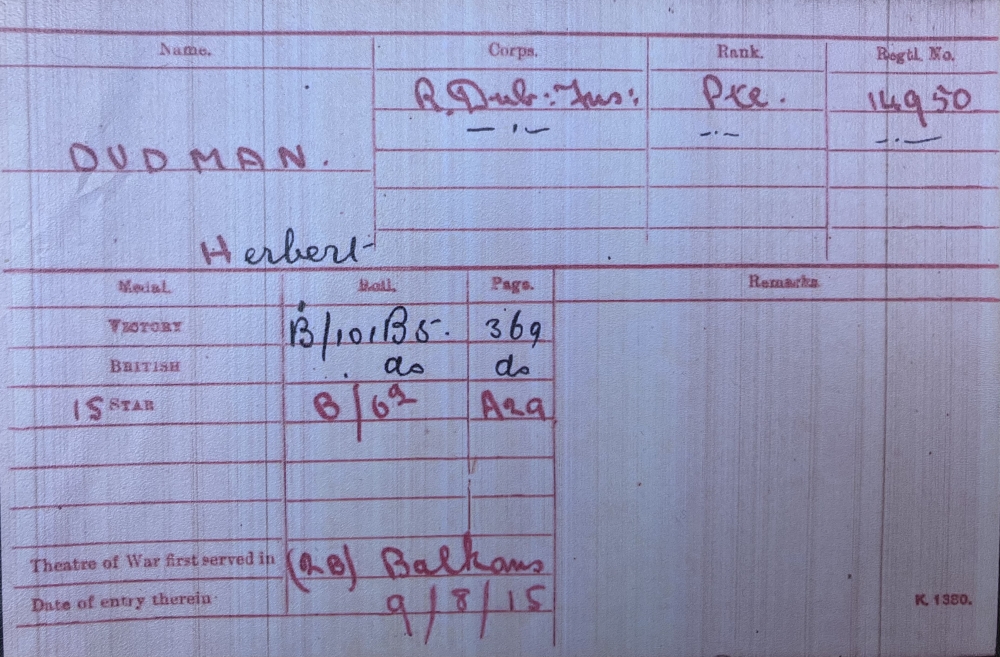 Name. Corps. Rank. Regtl. No.
R. Dub: Fus: Pte. 14950
— " — — " — — " —
DUDMAN.
Herbert
Medal. Roll. Page. Remarks.
VICTORY B/101B5. 369
BRITISH do do
15 STAR B/6 A29
Theatre of War first served in (2B) Balkans
Date of entry therein 9/8/15
K. 1380.